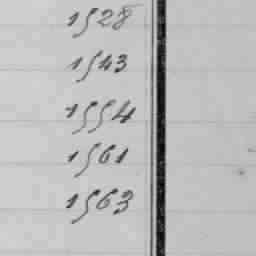 1528
1543
1554
1561
1563